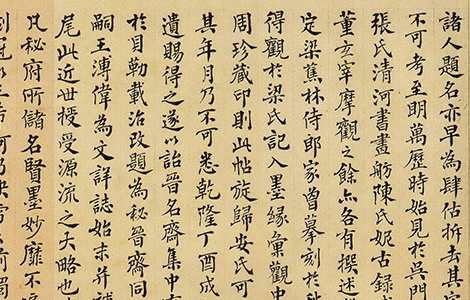 諸人題名亦早為肆估折去其
不可考至明萬曆時始見於吳門
張氏清河書畫舫陳氏妮古錄
董玄宰摩觀之餘亦各有撰述
定梁蕉林侍郎家曾摹刻於
得觀於梁氏記入墨緣彙觀中
周珍藏印則此帖旋歸安氏可
其年月乃不可悉乾隆丁酉成
遺賜得之遂以詒晉名齋集中
於目勒載治改題為秘晉齋同
嗣王溥偉為文詳誌始末并
尾此近世授受源流之大略也
凡秘府所儲名賢墨妙靡不